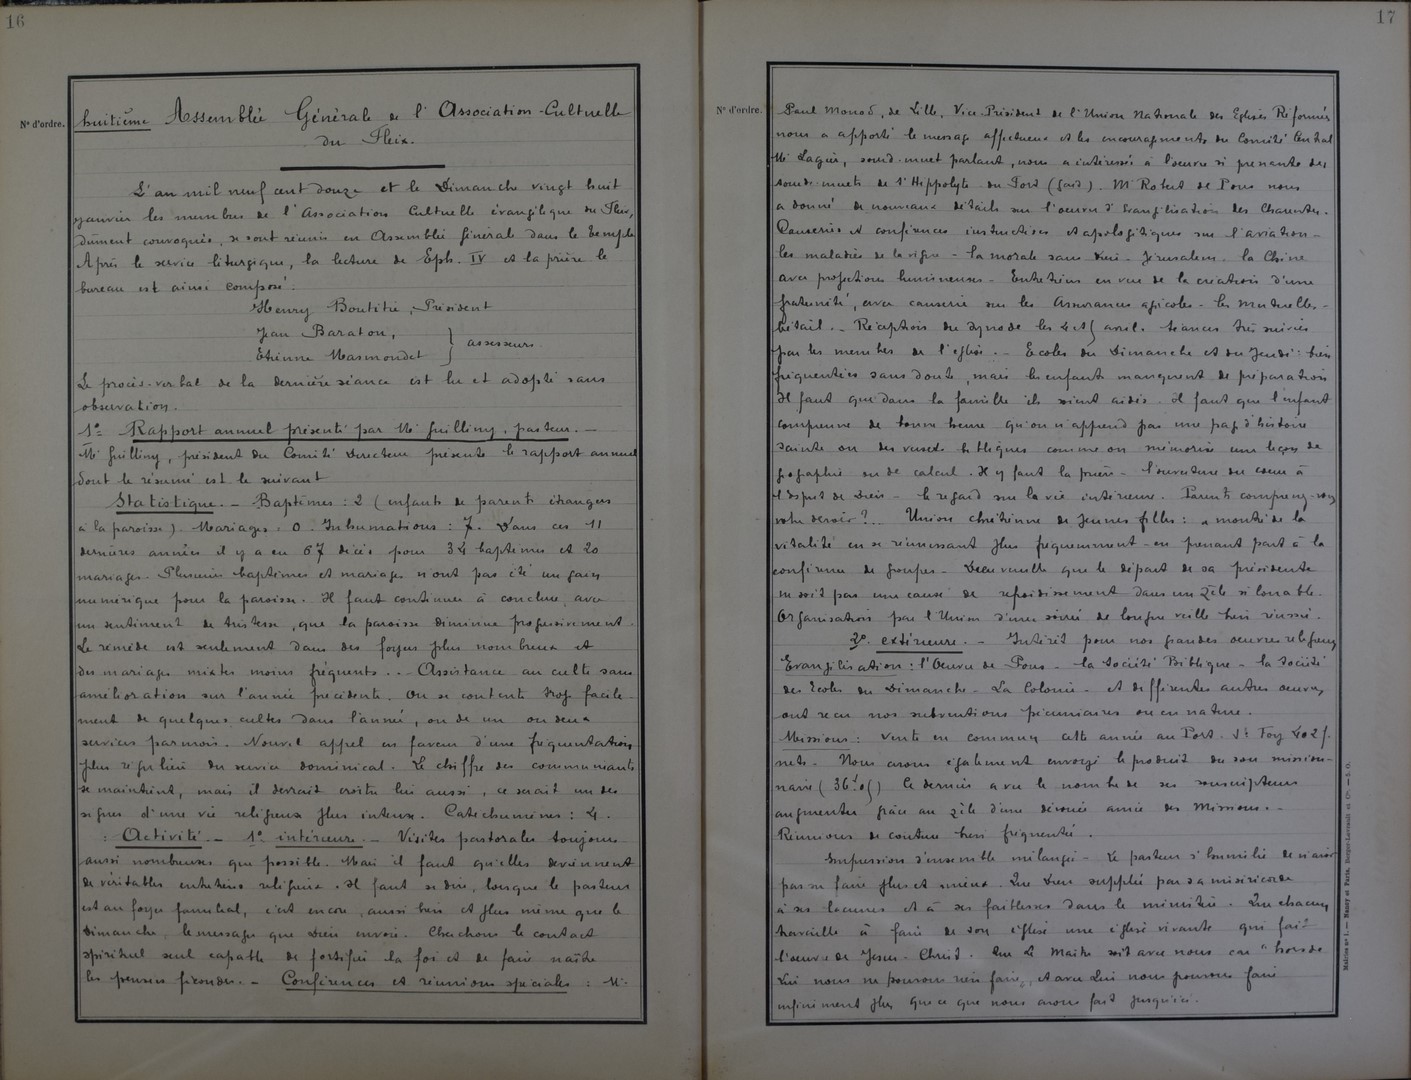 16
N° d'ordre.
huitième Assemblée Générale de l'Association-Cultuelle
du Fleix.
L'an mil neuf cent douze et le Dimanche vingt huit
janvier les membres de l'Association Cultuelle évangélique du Fleix,
dûment convoqués, se sont réunis en Assemblée générale dans le temple
Après le service liturgique, la lecture de Eph. IV et la prière le
bureau est ainsi composé :
Henry Boutitié, Président
Jean Baraton,
Etienne Masmondet } assesseurs.
Le procès-verbal de la dernière séance est lu et adopté sans
observation.
1° Rapport annuel présenté par Mr Guilliny, pasteur. —
Mr Guilliny, président du Comité Directeur présente le rapport annuel
dont le résumé est le suivant
Statistique. — Baptêmes : 2 (enfants de parents étrangers
à la paroisse). Mariages : 0. Inhumations : 7. Dans ces 11
dernières années il y a eu 67 décès pour 34 baptêmes et 20
mariages. Plusieurs baptêmes et mariages n'ont pas été un gain
numérique pour la paroisse. Il faut continuer à conclure, avec
un sentiment de tristesse, que la paroisse diminue progressivement.
Le remède est seulement dans des foyers plus nombreux et
des mariages mixtes moins fréquents. — Assistance au culte sans
amélioration sur l'année précédente. On se contente trop facile-
ment de quelques cultes dans l'année, ou de un ou deux
services par mois. Nouvel appel en faveur d'une fréquentation
plus régulière du service dominical. Le chiffre des communiants
se maintient, mais il devrait croître lui aussi, ce serait un des
signes d'une vie religieuse plus intense. Catéchumènes : 4.
: Activité. — 1° intérieure. — Visites pastorales toujours
aussi nombreuses que possible. Mais il faut qu'elles deviennent
de véritables entretiens religieux. Il faut se dire, lorsque le pasteur
est au foyer familial, c'est encore, aussi bien et plus même que le
Dimanche, le message que Dieu envoie. Cherchons le contact
spirituel seul capable de fortifier la foi et de faire naître
les pensées fécondes. — Conférences et réunions spéciales : Mr
17
N° d'ordre.
Paul Monod, de Lille, Vice-Président de l'Union Nationale des Eglises Réformées
nous a apporté le message affectueux et les encouragements du Comité Central
Mr Lagier, sourd-muet parlant, nous a intéressés à l'oeuvre si prenante des
sourds-muets de St Hippolyte du Fort (Gard). Mr Robert de Pons nous
a donné de nouveaux détails sur l'oeuvre d'Evangélisation des Charentes.
Causeries et conférences instructives et apologétiques sur l'aviation —
les maladies de la vigne — la morale sans Dieu — Jérusalem — la Chine
avec projections lumineuses — Entretiens en vue de la création d'une
fraternité, avec causerie sur les Assurances agricoles — les mutuelles-
bétail. — Réception du synode les 4 et 5 avril, séances très suivies
par les membres de l'église. — Ecoles du Dimanche et du Jeudi : bien
fréquentées sans doute, mais les enfants manquent de préparation
Il faut que dans la famille ils soient aidés. Il faut que l'enfant
comprenne de bonne heure qu'on n'apprend pas une page d'histoire
sainte ou des versets bibliques comme on mémorise une leçon de
géographie ou de calcul. Il y faut la prière — l'ouverture du coeur à
l'Esprit de Dieu — le regard sur la vie intérieure. Parents comprenez-vous
votre devoir ?.. Union chrétienne de jeunes filles : a montré de la
vitalité en se réunissant plus fréquemment — en prenant part à la
conférence de groupes — Dieu veuille que le départ de sa présidente
ne soit pas une cause de refroidissement dans un zèle si louable.
Organisation par l'Union d'une soirée de longue veille bien réussie.
2°. extérieure. — Intérêt pour nos grandes oeuvres religieuses
Evangélisation : l'Oeuvre de Pons — la Société Biblique — la Société
des Ecoles du Dimanche — La Colonie — et différentes autres oeuvres
ont reçu nos subventions pécuniaires ou en nature.
Missions : vente en commun cette année au Port-Ste Foy 402f.
nets — Nous avons également envoyé le produit du sou mission-
naire (36f.05) ce dernier a vu le nombre de ses souscripteurs
augmenter grâce au zèle d'une dévouée amie des Missions. —
Réunions de couture bien fréquentées.
Impression d'ensemble mélangée — Le pasteur s'humilie de n'avoir
pas su faire plus et mieux. Que Dieu supplée par sa miséricorde
à ses lacunes et à ses faiblesses dans le ministère. Que chacun
travaille à faire de son église une église vivante qui fait
l'oeuvre de Jésus-Christ. Que Le Maître soit avec nous car "hors de
Lui nous ne pouvons rien faire", et avec Lui nous pouvons faire
infiniment plus que ce que nous avons fait jusqu'ici.
Maîtres n° 1. — Nancy et Paris, Berger-Levrault et Cie. — J. O.